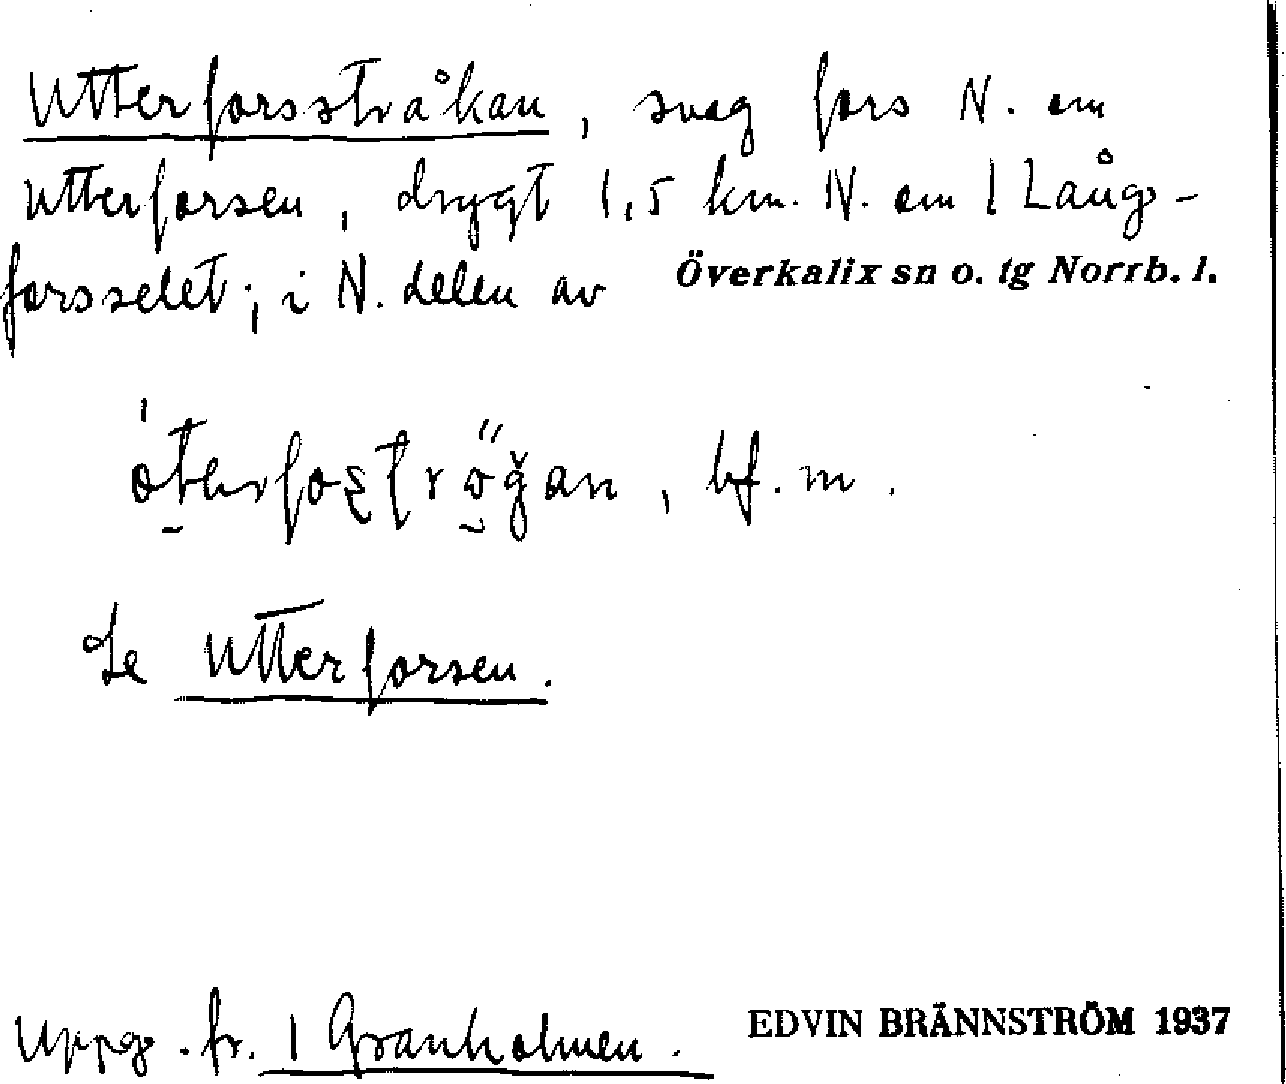 Utterforsstråkan, svag fors N. om
Utterforsen, drygt 1,5 km. N. om 1 Lång-
forsselet; i N. delen av Överkalix sn o. tg Norrb. l.
bf. m.
Se Utterforsen.
Uppg. fr. 1 Granholmen. EDVIN BRÄNNSTRÖM 1937